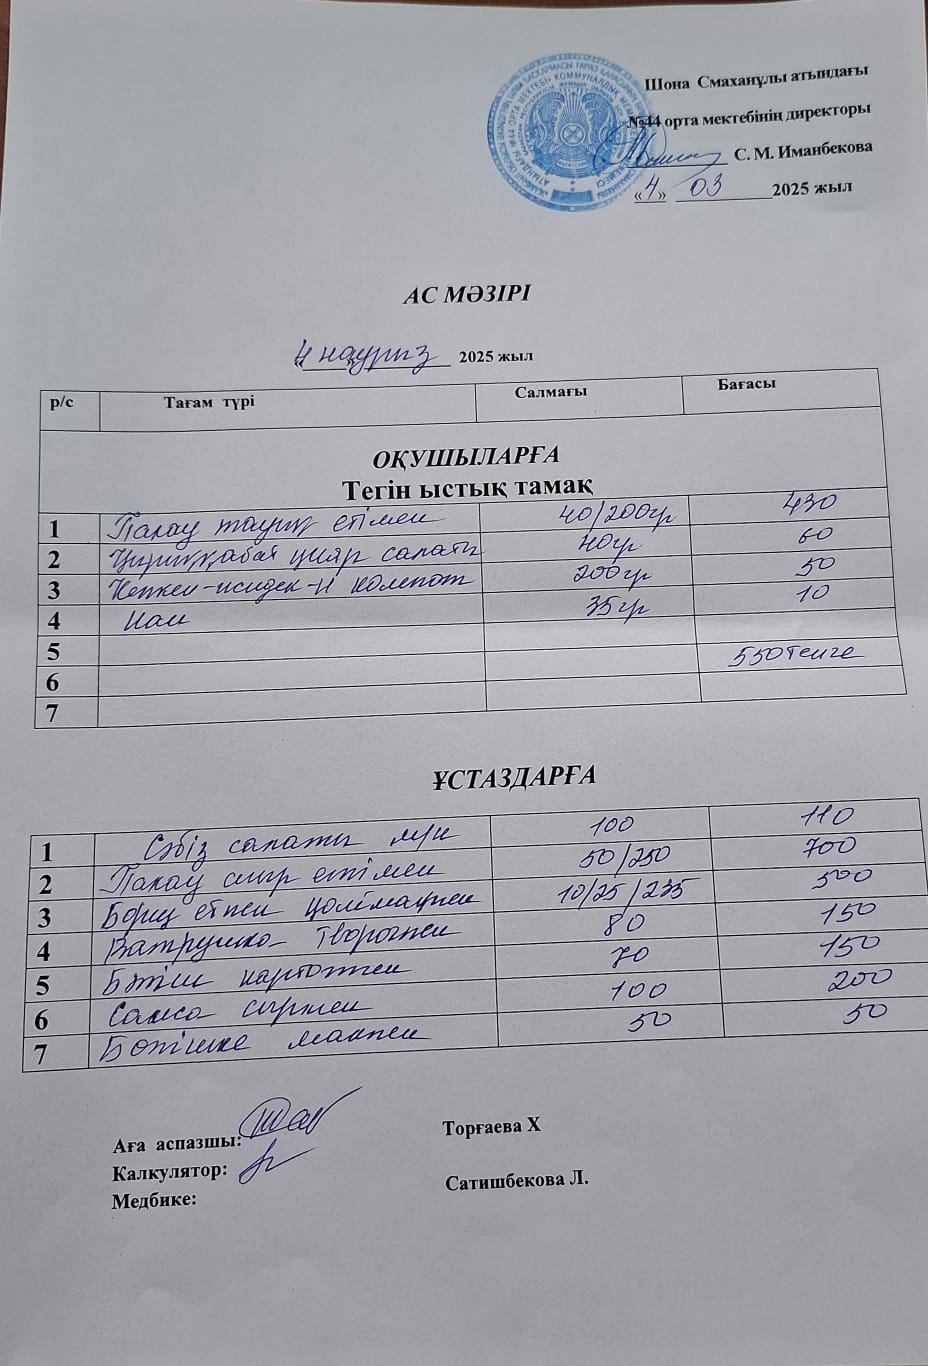 Шона Смаханұлы атындағы
№44 орта мектебінің директоры
С. М. Иманбекова
«4» 03 2025 жыл
АС МӘЗІРІ
«4 наурыз 2025 жыл
р/с Тағам түрі Салмағы Бағасы
ОҚУШЫЛАРҒА
Тегін ыстық тамақ
1 Палау тауық етімен 40/200гр 430
2 қабат қияр салаты 40гр 60
3 Кепкен-жидек-н компот 200гр 50
4 Нан 35гр 10
5 550 тенге
6
7
ҰСТАЗДАРҒА
1 Сәбіз салаты м/н 100 110
2 Палау сиыр етімен 50/250 700
3 Борщ етпен қаймақпен 10/25/235 500
4 Ватрушка творогпен 80 150
5 Бәліш картоппен 70 150
6 Самса сырмен 100 200
7 Бәтішке макпен 50 50
Аға аспазшы: Торғаева Х
Калкулятор:
Медбике: Сатишбекова Л.